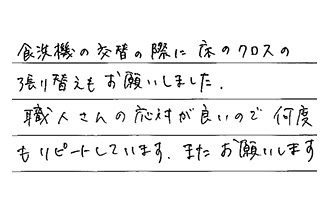 食洗機の交替の際に床のクロスの
張り替えもお願いしました.
職人さんの応対が良いので何度
もリピートしています.またお願いします